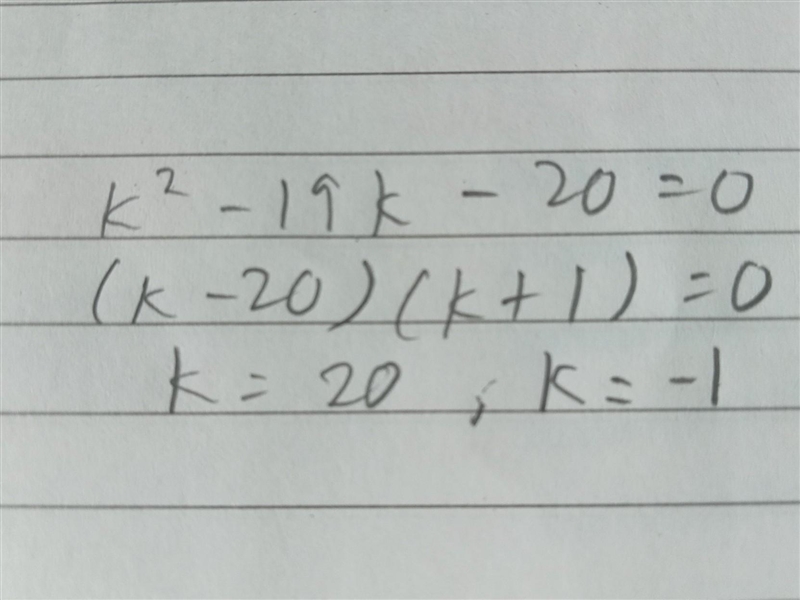 k² - 19k - 20 = 0
(k - 20)(k + 1) = 0
k = 20 , k = -1